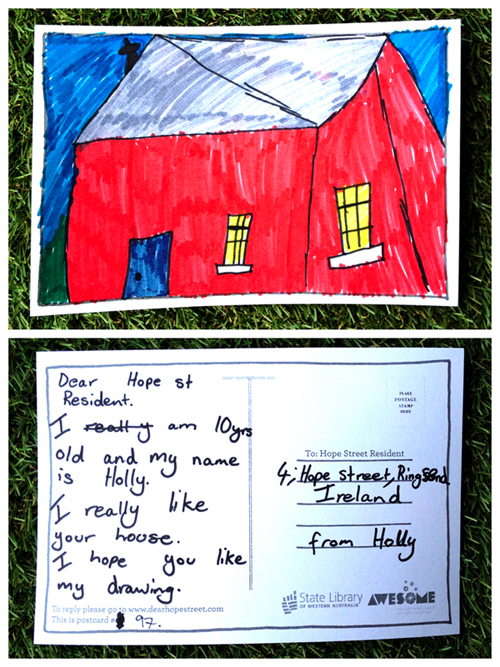 Dear Hope st
Resident.
I really am 10yrs
old and my name
is Holly.
I really like
your house.
I hope you like
my drawing.
To reply please go to www.dearhopestreet.com
This is postcard # 97.
PLACE
POSTAGE
STAMP
HERE
To: Hope Street Resident
4, Hope street, Ringsend
Ireland
from Holly
State Library
OF WESTERN AUSTRALIA
AWESOME